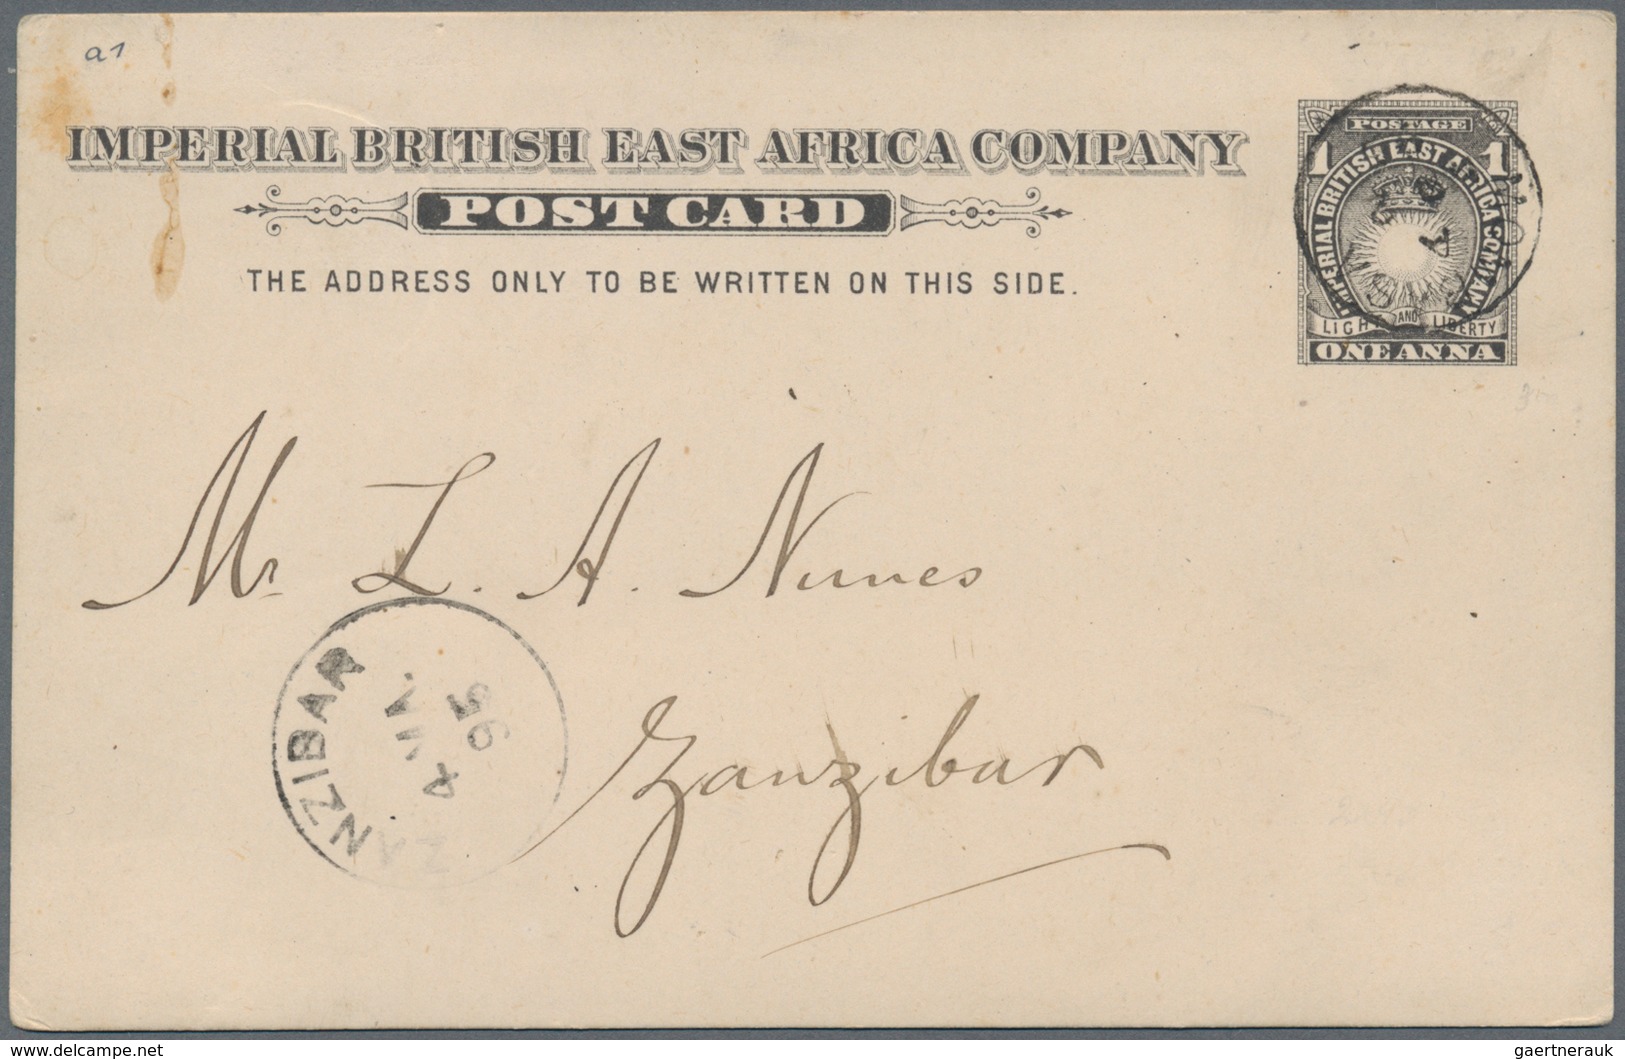 a1
IMPERIAL BRITISH EAST AFRICA COMPANY
POST CARD
THE ADDRESS ONLY TO BE WRITTEN ON THIS SIDE.
POSTAGE
1 1
IMPERIAL BRITISH EAST AFRICA COMPANY
LIGHT AND LIBERTY
ONE ANNA
Mr L. A. Nunes
Zanzibar
ZANZIBAR
95
www.delcampe.net
gaertnerauk